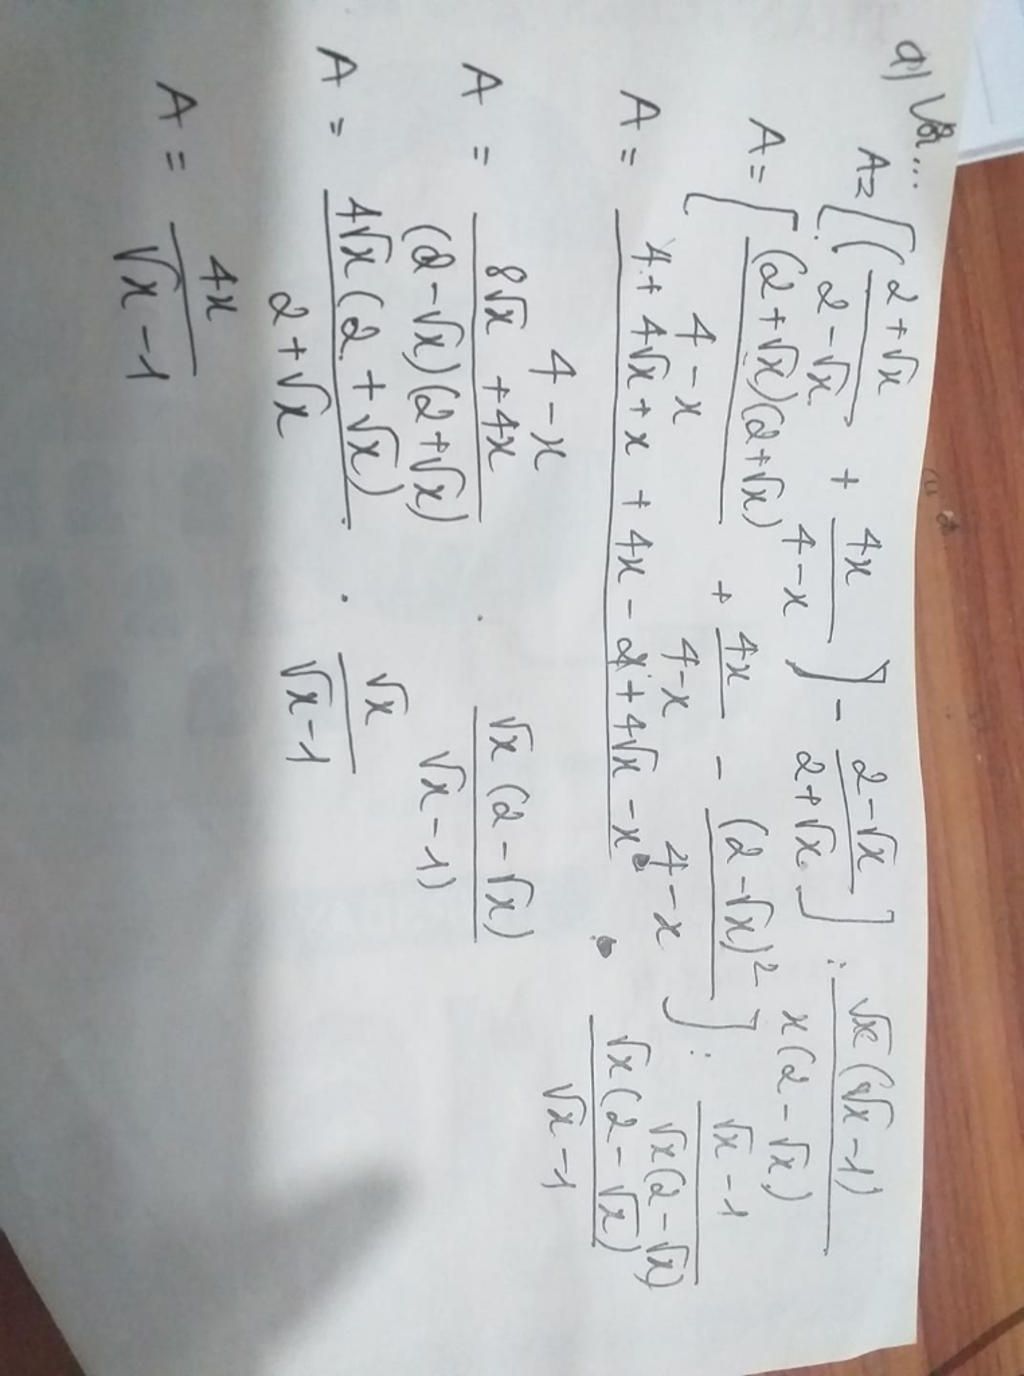 a) Với...
A = [(2+√x / 2-√x + 4x / 4-x) - 2-√x / 2+√x] : √x(√x-1) / x(2-√x)
A = [(2+√x)(2+√x) / 4-x + 4x / 4-x - (2-√x)² / 4-x] : √x-1 / √x(2-√x)
A = 4+4√x+x+4x-4+4√x-x / 4-x . √x(2-√x) / √x-1
A = 8√x+4x / (2-√x)(2+√x) . √x(2-√x) / √x-1)
A = 4√x(2+√x) / 2+√x . √x / √x-1
A = 4x / √x-1